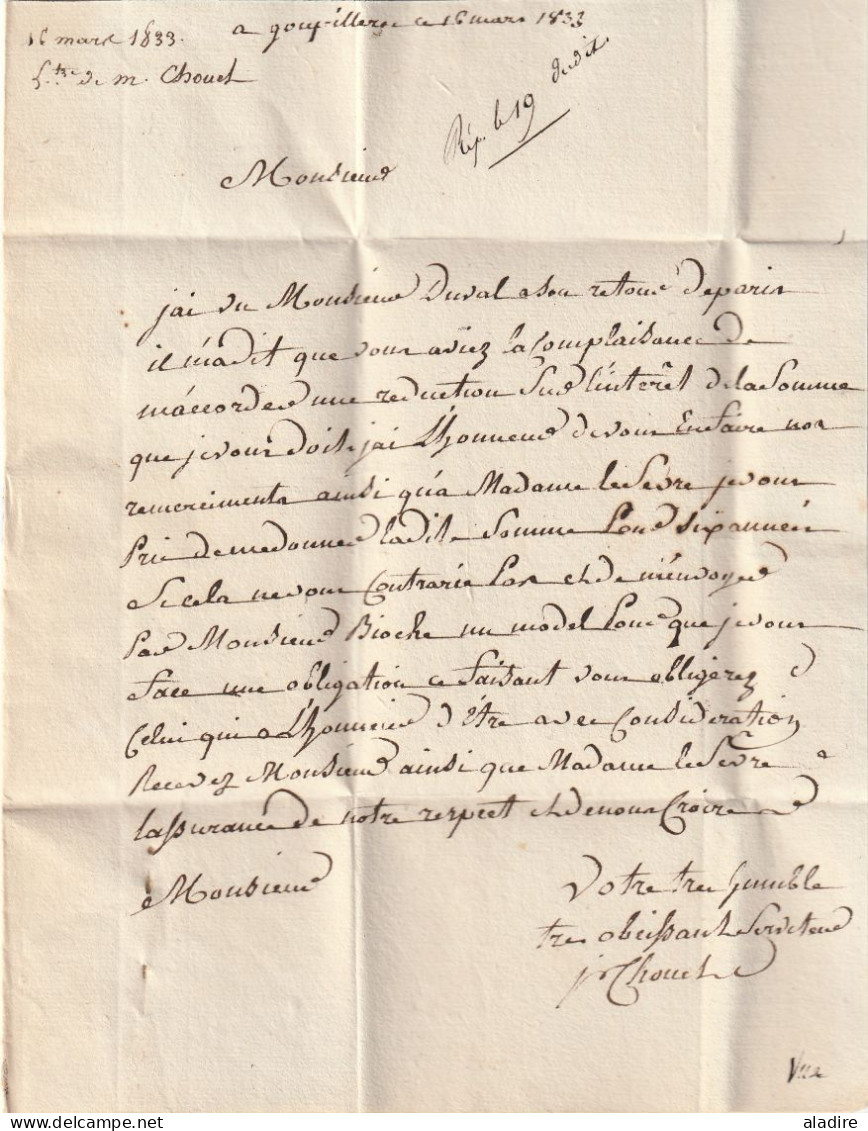 16 mars 1833.
a goupilleres ce 16 mars 1833
Ltre de m. Chouet
Rép. le 19 dudit
Monsieur
jai vu Monsieur Duval a son retour deparis
il m'adit que vous aviez la Complaisance de
m'accorder une reduction Sur l'interêt de la Somme
que jevous doit, jai L'honneur devous En faire nos
remerciments ainsi qu'a Madame le Sevre jevous
Prie de medonner ladite Somme Pour Six années
Si cela nevous Contrarie Pas et de m'envoyer
Par Monsieur Bioche un model Pour que jevous
face une obligation ce faisant vous obligerez
Celui qui a L'honneur d'Etre avec Consideration
Recevez Monsieur ainsi que Madame le Sevre
lassurance de notre respect et denous Croire
Monsieur
Votre tres humble
tres obeissant Serviteur
j Chouet
aladire